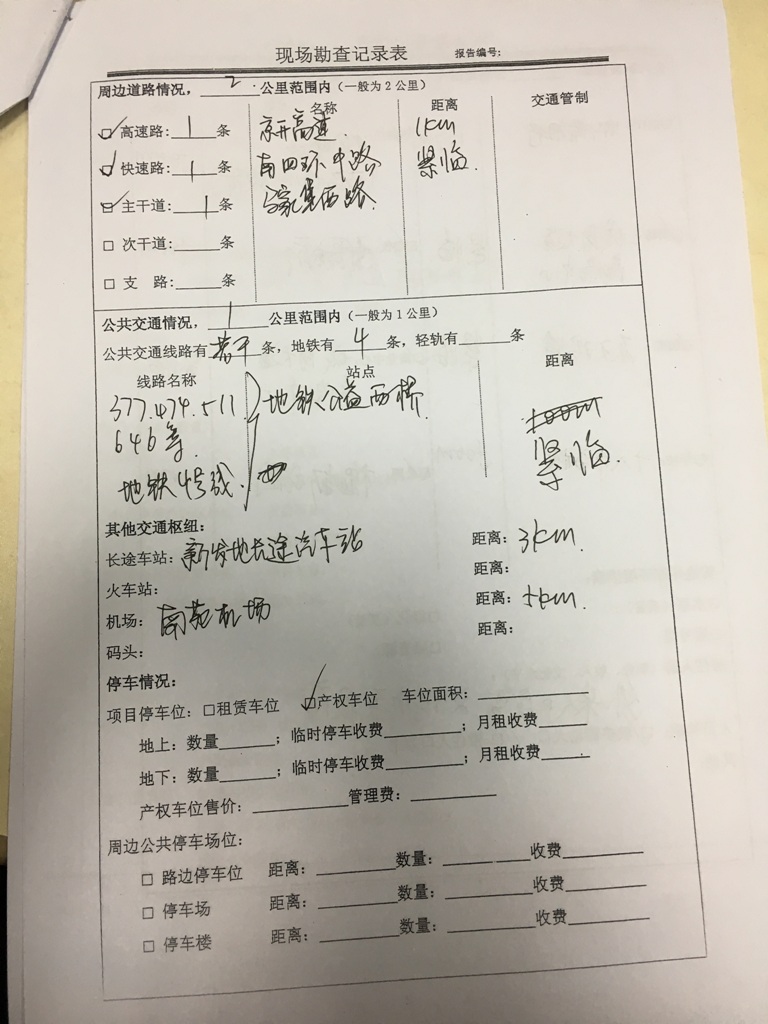 现场勘查记录表 报告编号:
周边道路情况，2公里范围内（一般为2公里）
名称 距离 交通管制
☑ 高速路: 1 条 京开高速 1km
☑ 快速路: 1 条 南四环中路 紧临
☑ 主干道: 1 条 马家堡西路
□ 次干道:____条
□ 支 路:____条
公共交通情况，1公里范围内（一般为1公里）
公共交通线路有若干条，地铁有4条，轻轨有____条
线路名称 站点 距离
377.474.511 地铁公益西桥
646等 紧临.
地铁4号线.
其他交通枢纽:
长途车站: 新发地长途汽车站 距离: 3km
火车站: 距离:
机场: 南苑机场 距离: 5km
码头: 距离:
停车情况:
项目停车位: □租赁车位 ☑产权车位 车位面积:________
地上: 数量____; 临时停车收费____; 月租收费____
地下: 数量____; 临时停车收费____; 月租收费____
产权车位售价:________管理费:________
周边公共停车场位:
□ 路边停车位 距离:________数量:________收费________
□ 停车场 距离:________数量:________收费________
□ 停车楼 距离:________数量:________收费________